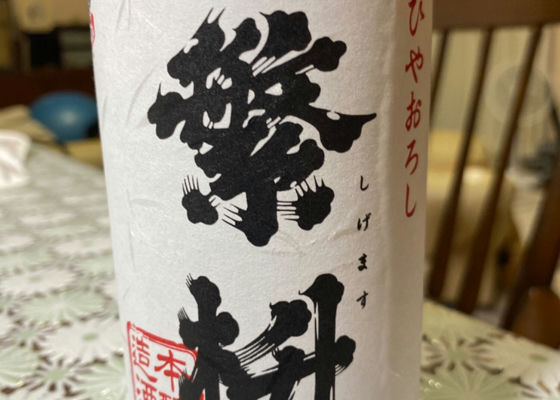 ひやおろし
繁桝
しげます
本醸
造酒